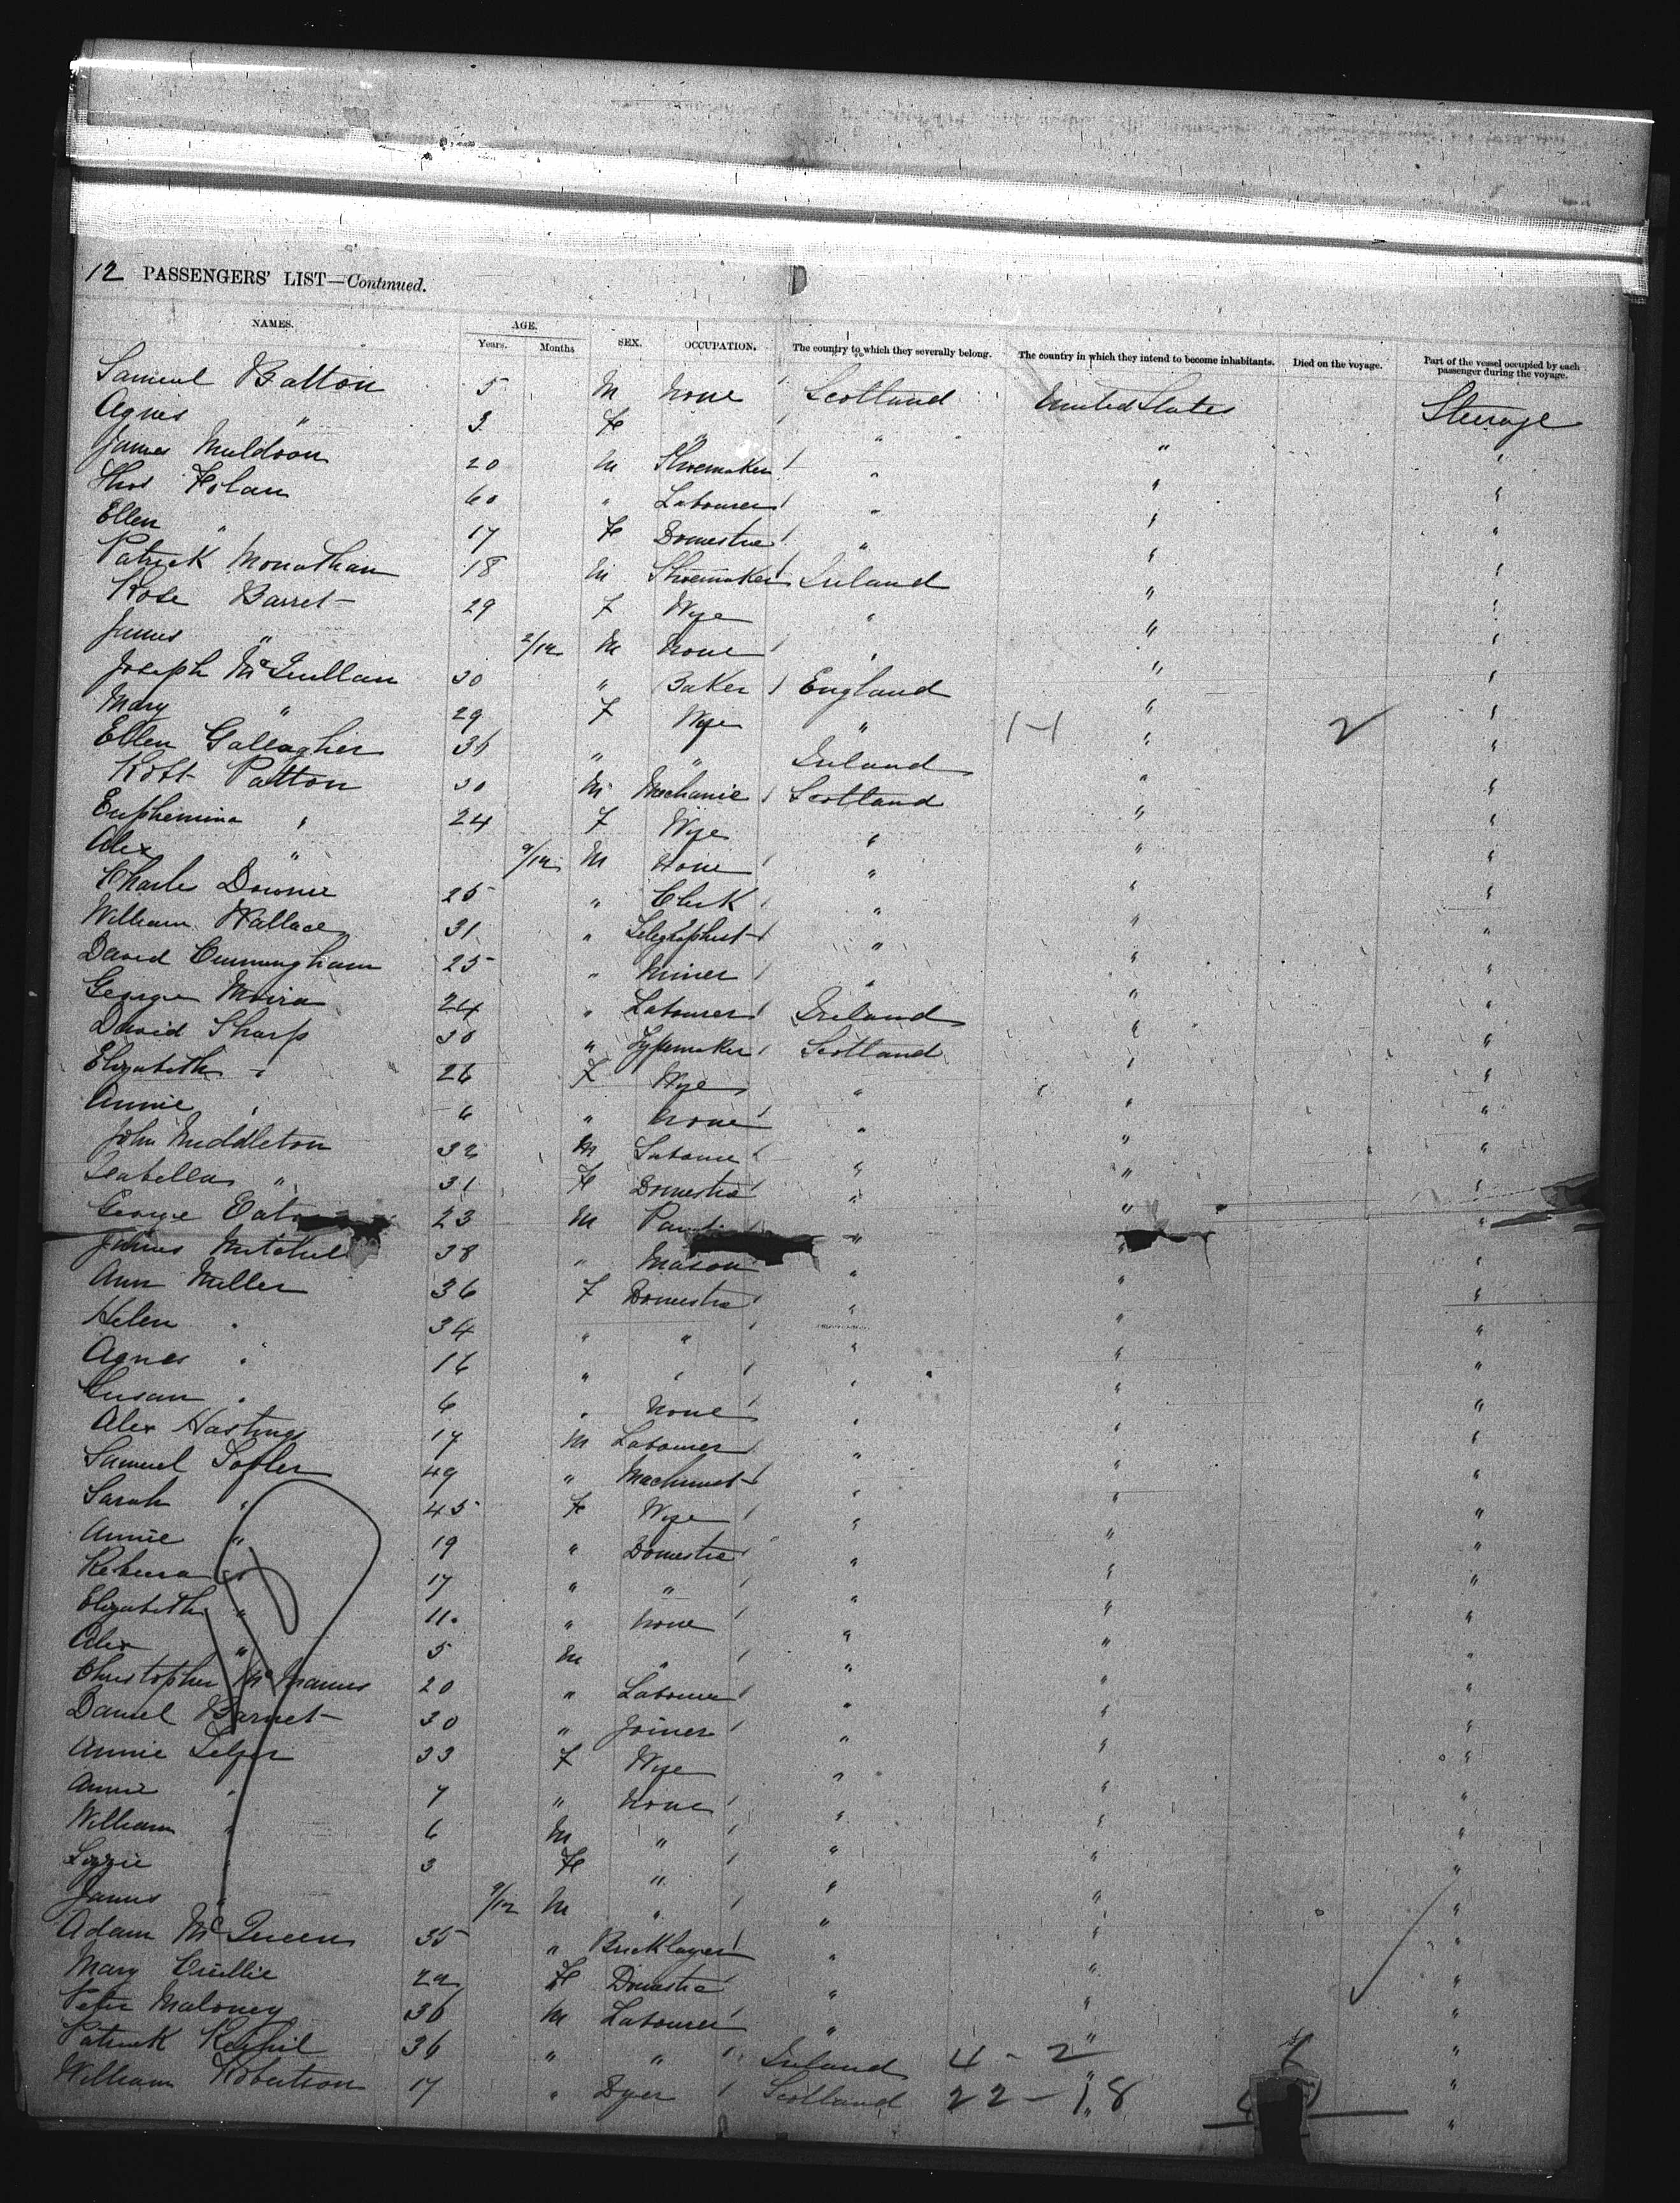 12 PASSENGERS' LIST—Continued.
NAMES. AGE. Years. Months SEX. OCCUPATION. The country to which they severally belong. The country in which they intend to become inhabitants. Died on the voyage. Part of the vessel occupied by each passenger during the voyage.
Samuel Batton 5 M None Scotland United States Steerage
Agnes " 3 F " " " "
James Muldoon 20 M Shoemaker " " "
Thos Folan 60 " Labourer " " "
Ellen " 17 F Domestic " " "
Patrick Monathan 18 M Shoemaker Ireland " "
Rose Barret 29 F Wife " " "
James " 2/12 M None " " "
Joseph McQuillan 30 " Baker England " "
Mary " 29 F Wife " 1-1 " 2 "
Ellen Gallagher 36 " " Ireland " "
Robt Patton 30 M Mechanic Scotland " "
Euphemina " 24 F Wife " " "
Alex " 9/12 M None " " "
Charles Downie 25 " Clerk " " "
William Wallace 31 " Telegraphist " " "
David Cunningham 25 " Miner " " "
George Moira 24 " Labourer Ireland " "
David Sharp 30 " Typemaker Scotland " "
Elizabeth " 26 F Wife " " "
Annie " 6 " None " " "
John Middleton 32 M Labourer " " "
Isabella " 31 F Domestic " " "
George 23 M " " "
James Mitchell 38 " Mason " " "
Ann Miller 36 F Domestic " " "
Helen " 34 " " " " "
Agnes " 16 " " " " "
Susan " 6 " None " " "
Alex Hastings 17 M Labourer " " "
Samuel 49 " Machinist " " "
Sarah " 45 F Wife " " "
Annie " 19 " Domestic " " "
Rebecca " 17 " " " " "
Elizabeth " 11 " None " " "
Alex " 5 M " " " "
Christopher McManus 20 " Labourer " " "
Daniel Barnet 30 " Joiner " " "
Annie Telfer 33 F Wife " " "
Annie " 7 " None " " "
William " 6 M " " " "
Lizzie " 3 F " " " "
James " 9/12 M " " " "
Adam McQueen 35 " Bricklayer " " "
Mary 22 F Domestic " " "
Peter Maloney 30 M Labourer " " "
Patrick 36 " " Ireland 4-2 " "
William Robertson 17 " Dyer Scotland 22-18 " "